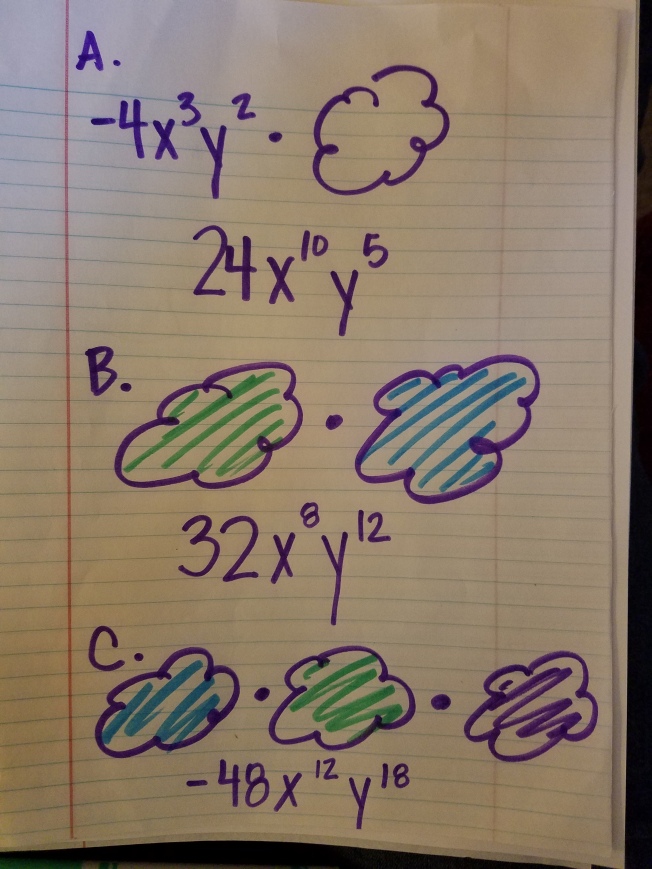 A.
-4x³y² ·
24x¹⁰y⁵
B.
·
32x⁸y¹²
C.
· ·
-48x¹²y¹⁸